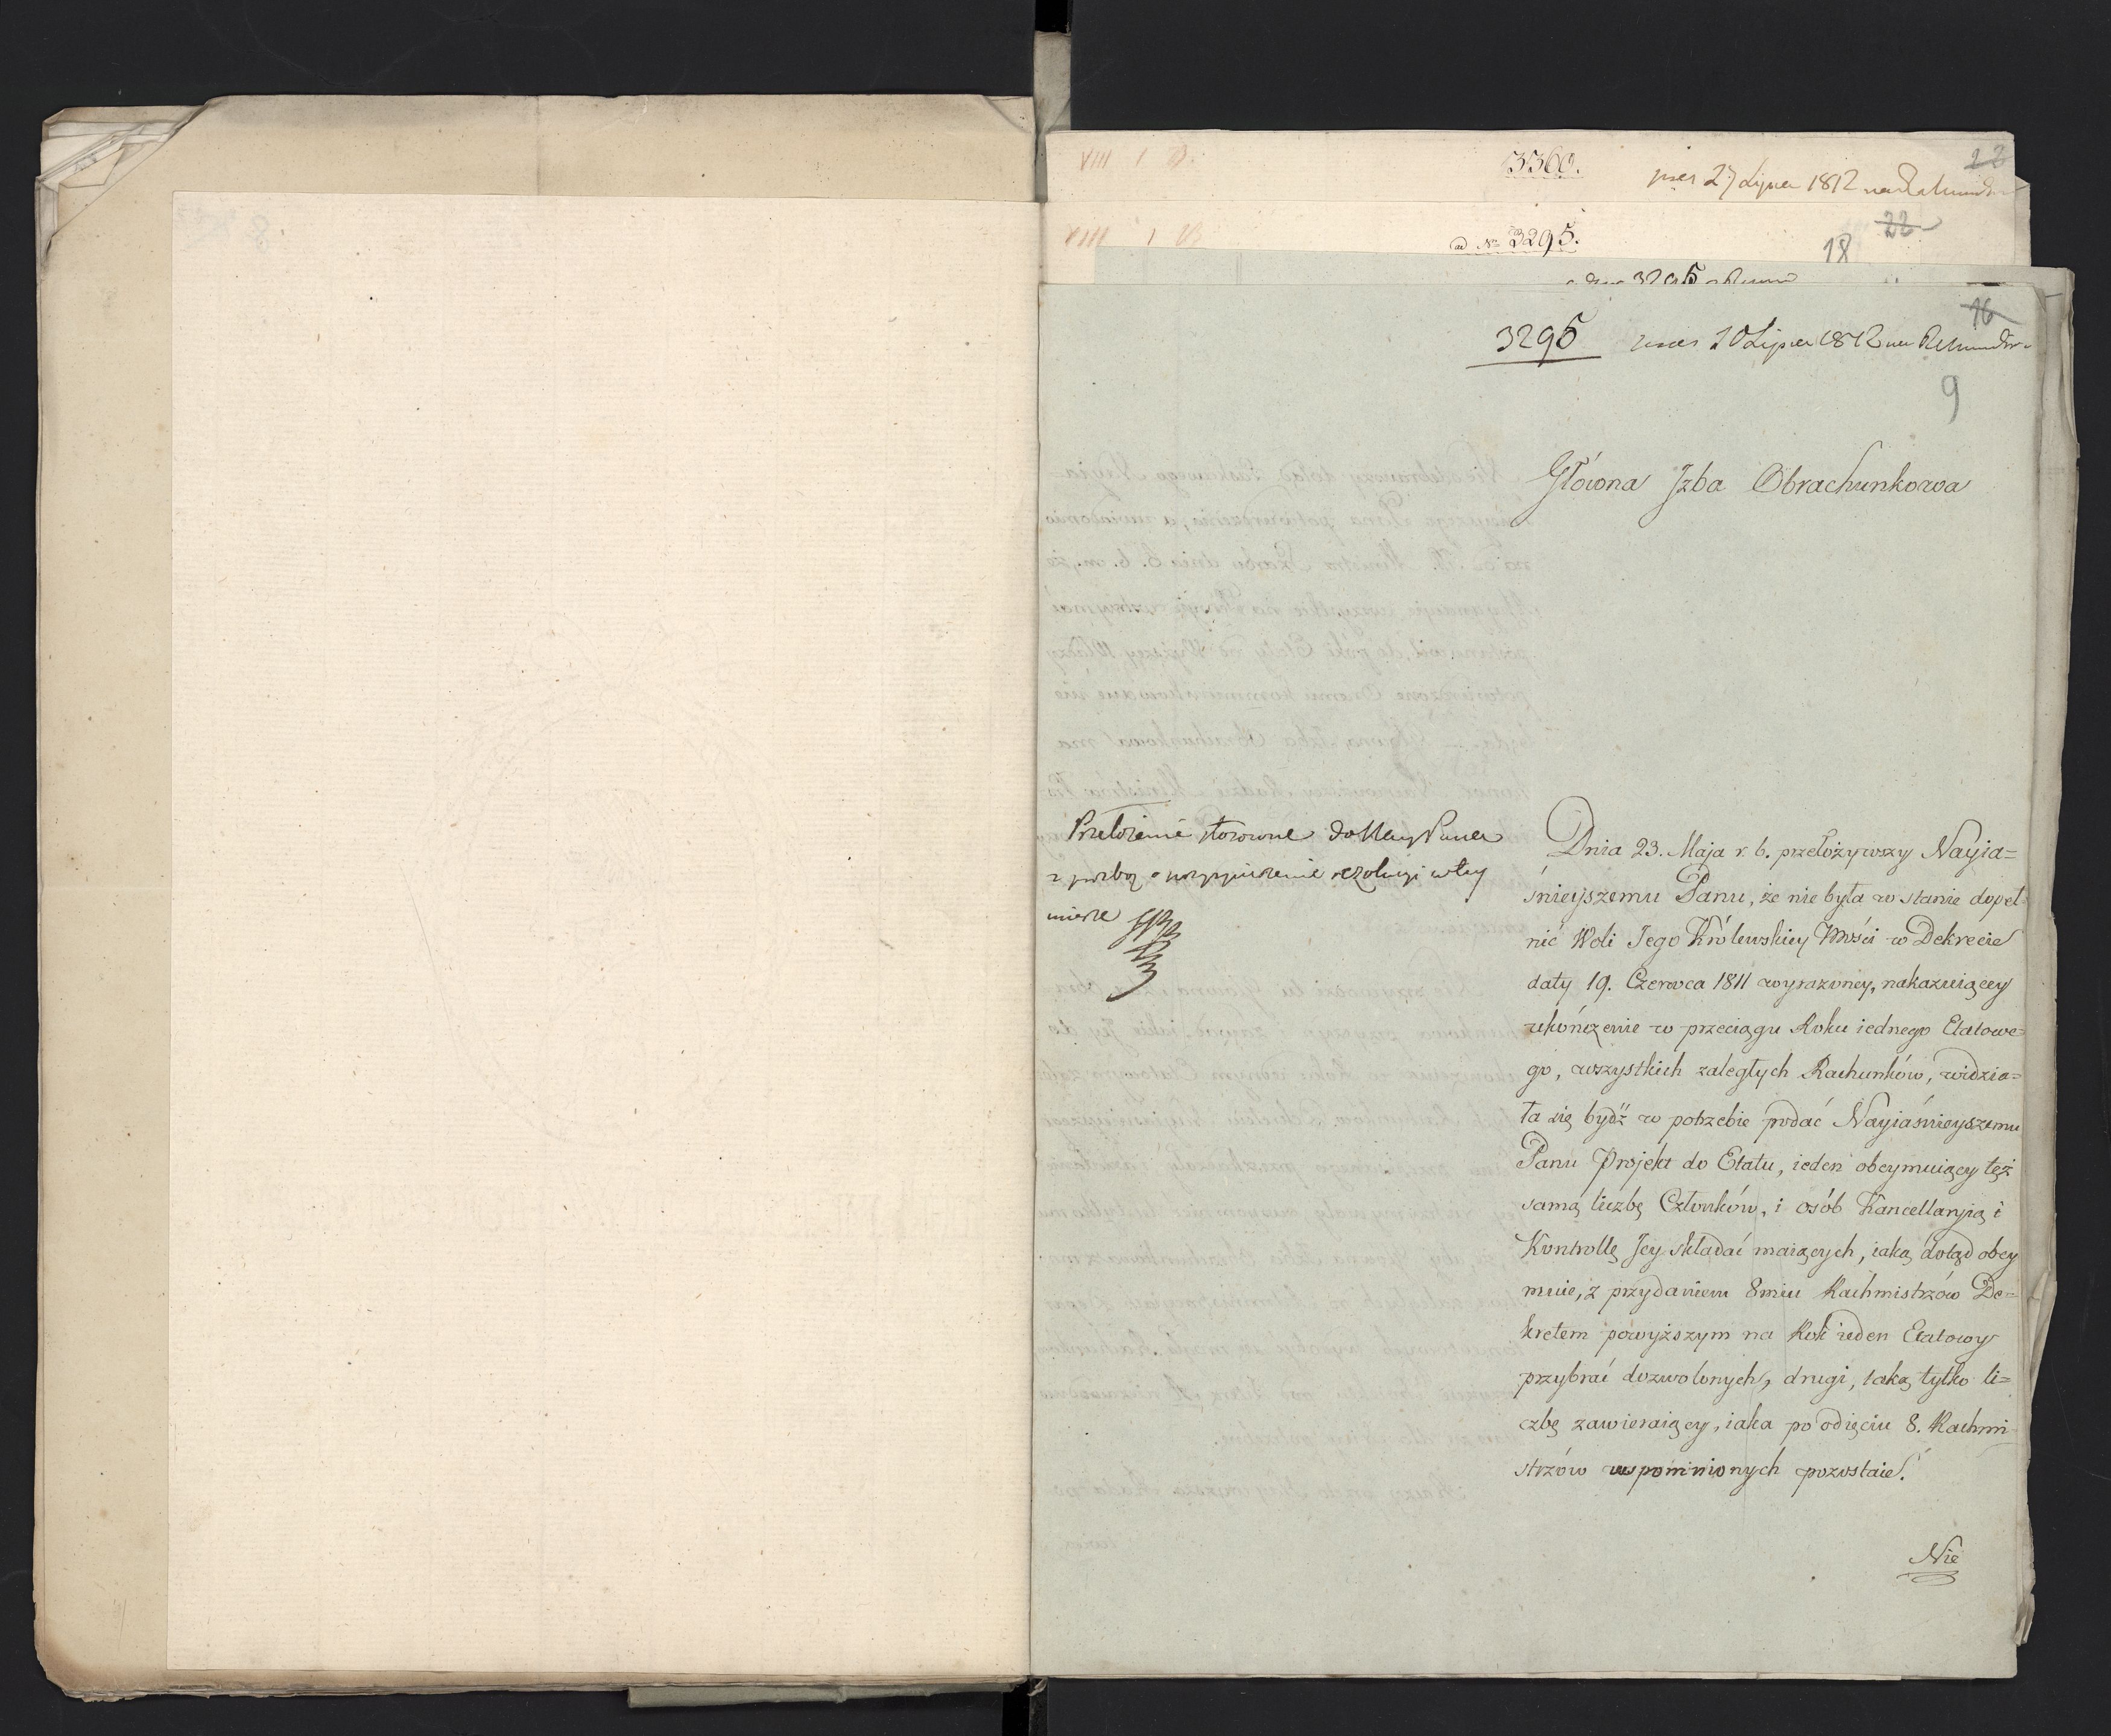 VIII I B.
3360.
27 Lipca 1812
22
VIII I B
ad No 3295.
22
18
3295
3295
10 Lipca 1812
16
9
Główna Izba Obrachunkowa
Przełożenie stosowne do Nay. Pana
z prozbą o przyspieszenie rezolucyi w tey
mierze
Dnia 23. Maja r. b. przełożywszy Nayia=
śnieyszemu Panu, że nie była w stanie dopeł-
nić Woli Jego Królewskiey Mości w Dekrecie
daty 19. Czerwca 1811 wyrażoney, nakazuiącey
ukończenie w przeciągu Roku iednego Etatowe=
go, wszystkich zaległych Rachunków, widzia=
ła się bydź w potrzebie podać Nayiaśnieyszemu
Panu Projekt do Etatu, ieden obeymuiący tęż
samą liczbę Członków, i osób Kancellaryią i
Kontrollę Jey składać maiących, iaką dotąd obey
muie, z przydaniem 8miu Rachmistrzów De=
kretem powyższym na Rok ieden Etatowy
przybrać dozwolonych, drugi, taką tylko li=
czbę zawieraiący, iaka po odięciu 8. Rachmi-
strzów wspomnionych pozostaie.
Nie